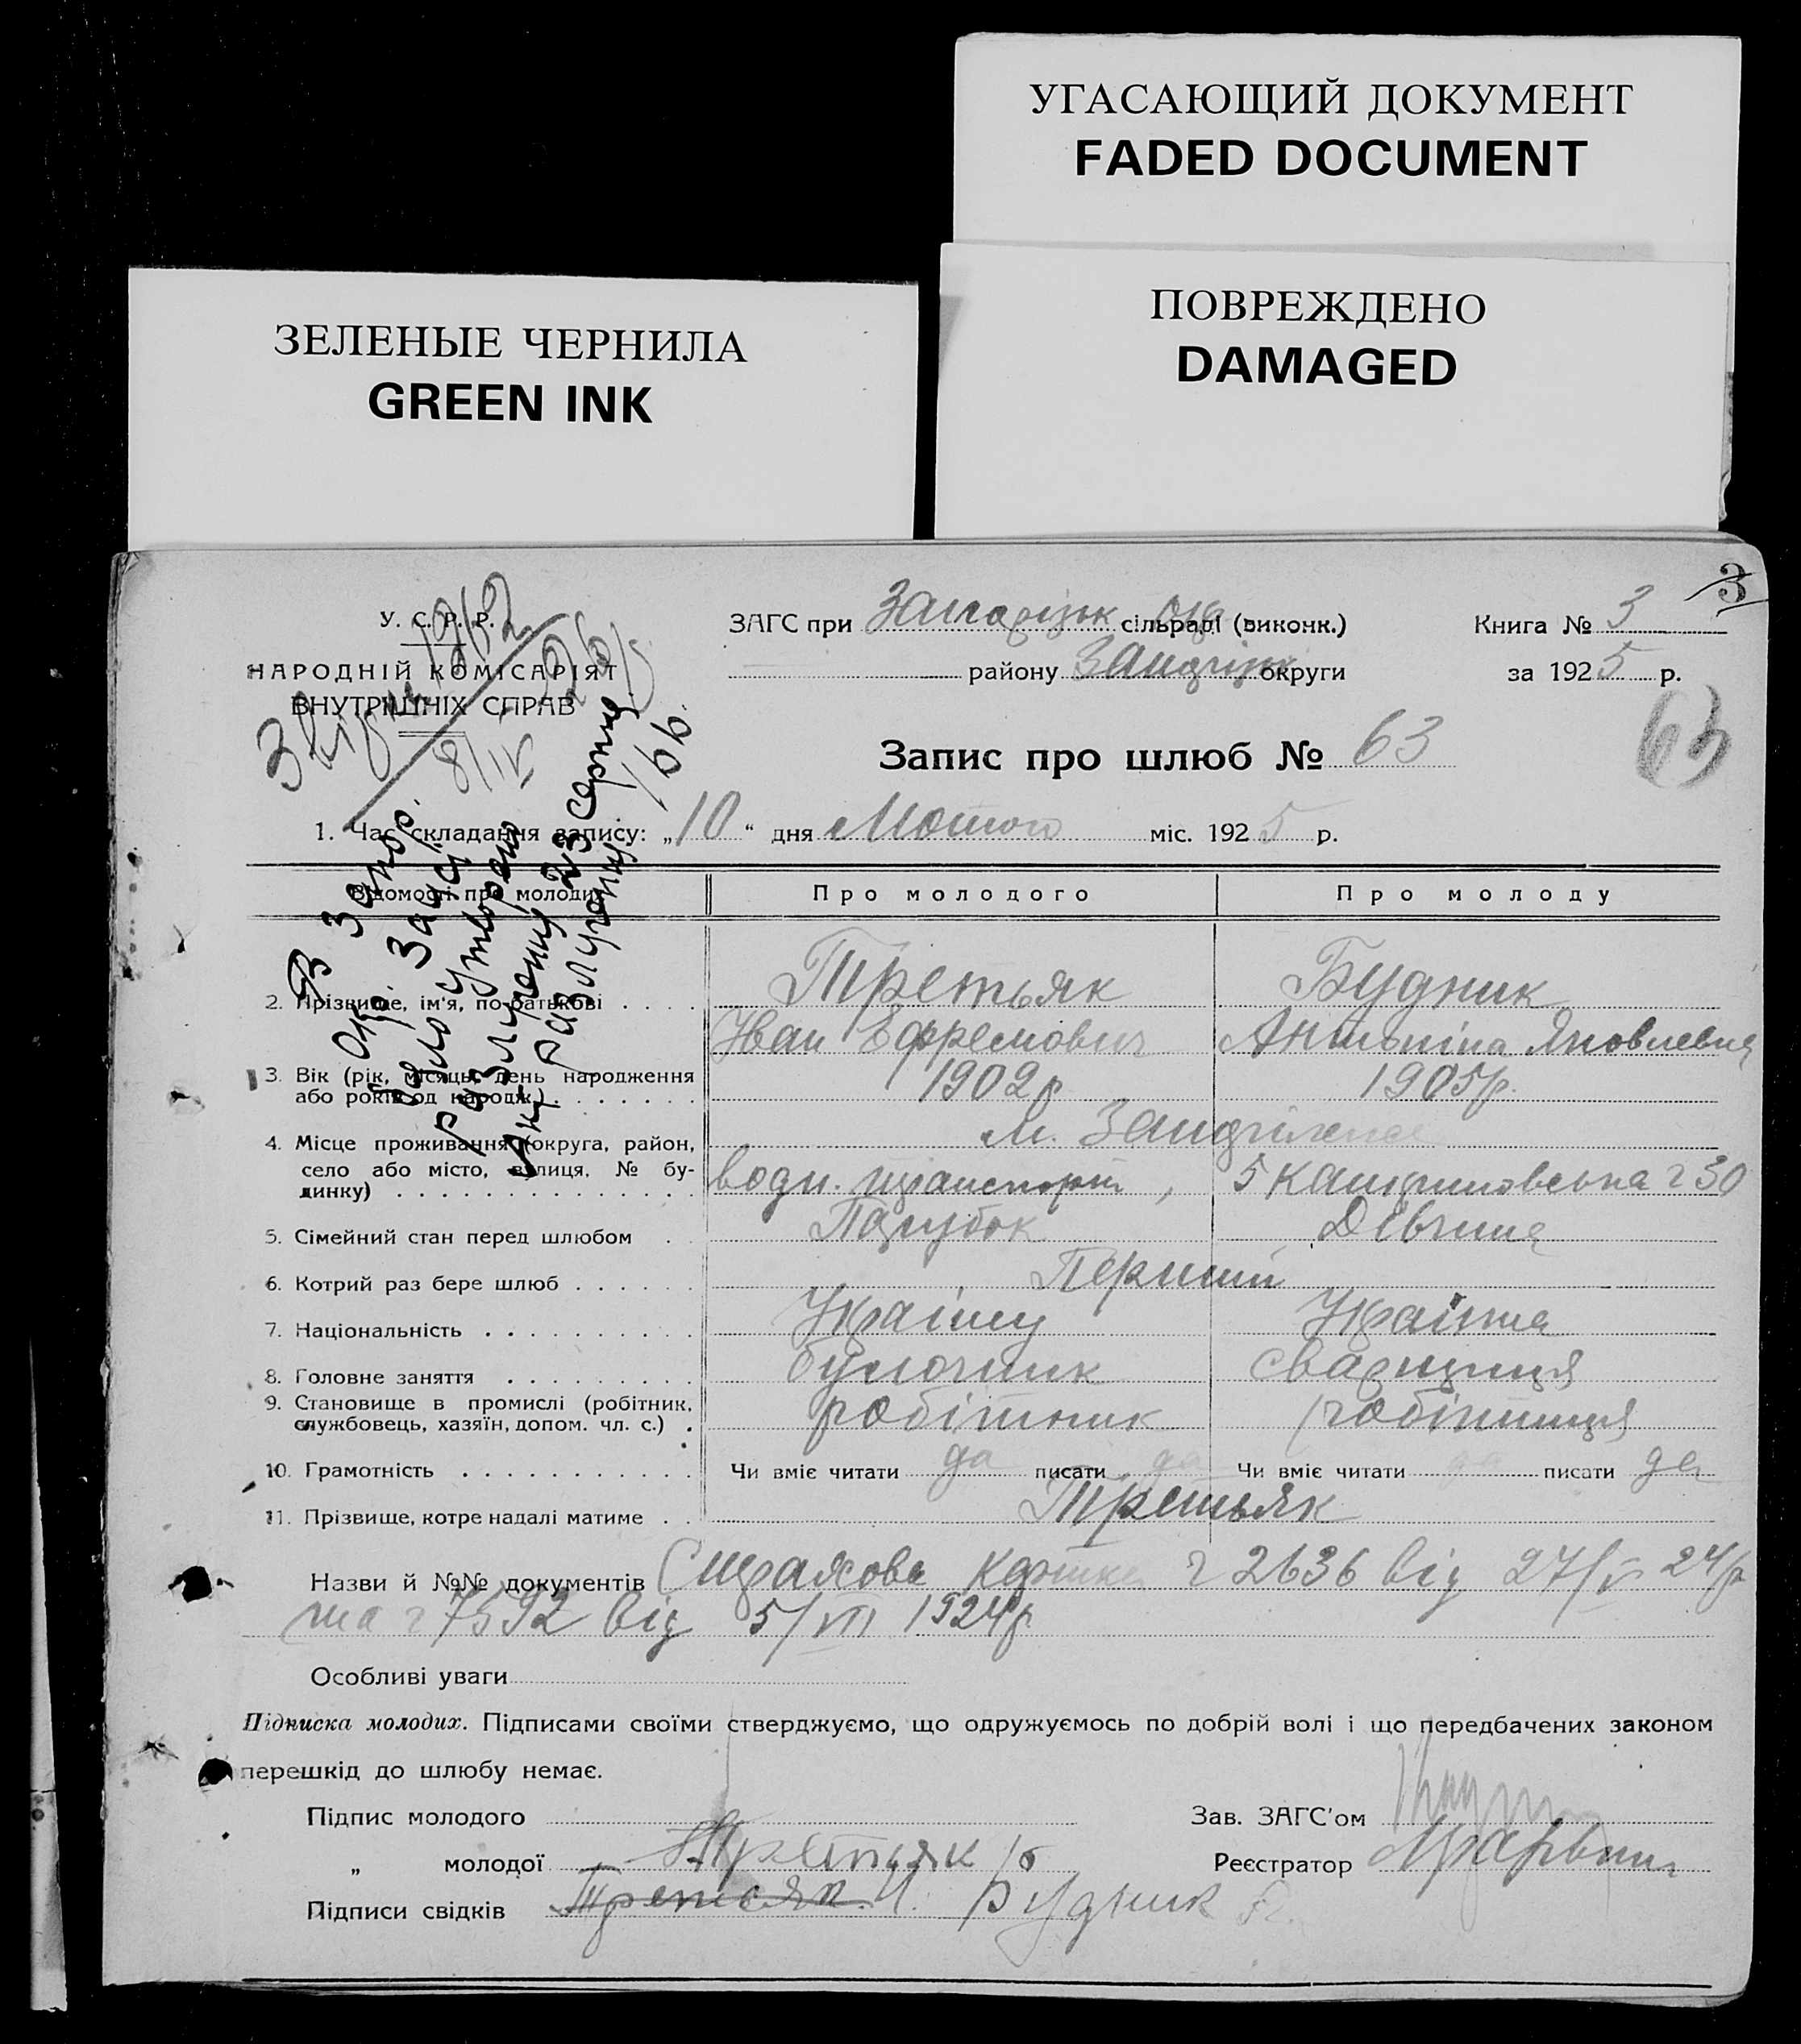 УГАСАЮЩИЙ ДОКУМЕНТ
FADED DOCUMENT
ПОВРЕЖДЕНО
DAMAGED
ЗЕЛЕНЫЕ ЧЕРНИЛА
GREEN INK
3
У. С. Р. Р.
НАРОДНІЙ КОМІСАРІЯТ
ВНУТРІШНІХ СПРАВ
ЗАГС при Запорізьк окр. сільраді (виконк.)
району Запоріз округи
Книга № 3
за 1925 р.
63
Запис про шлюб № 63
1. Час складання запису: „10“ дня Лютого міс. 1925 р.
В Запор.
Окр. Загсі
дело утворено
разлученну
Акт разлученну 23 серпня
166
Відомості про молодих
Про молодого
Про молоду
2. Прізвище, ім'я, по-батькові . . . .
Третьяк
Іван Ефремович
Будник
Антоніна Яковлевна
3. Вік (рік, місяць, день народження
або років од народж.) . . . . . . .
1902 р
1905 р.
4. Місце проживання (округа, район,
село або місто, вулиця, № бу-
динку) . . . . . . . . . . . . . .
м. Запоріжжє
водн. транспорт, 5 ч 30
5. Сімейний стан перед шлюбом . .
Парубок
Дівчина
6. Котрий раз бере шлюб . . . . . .
Перший
7. Національність . . . . . . . . . .
Україну
Українка
8. Головне заняття . . . . . . . . .
булочник
сварщиця
9. Становище в промислі (робітник,
службовець, хазяїн, допом. чл. с.) .
робітник
робітниця
10. Грамотність . . . . . . . . . . .
Чи вміє читати да писати да
Чи вміє читати да писати да
11. Прізвище, котре надалі матиме . .
Третьяк
Назви й №№ документів Страхова картка ч 2636 від 27/V 24 р
та ч 7592 від 5/VII 1924 р
Особливі уваги
Підписка молодих. Підписами своїми стверджуємо, що одружуємось по добрій волі і що передбачених законом
перешкід до шлюбу немає.
Підпис молодого
Зав. ЗАГС'ом
„ молодої Третьяк
Реєстратор
Підписи свідків Третьяк И. Будник